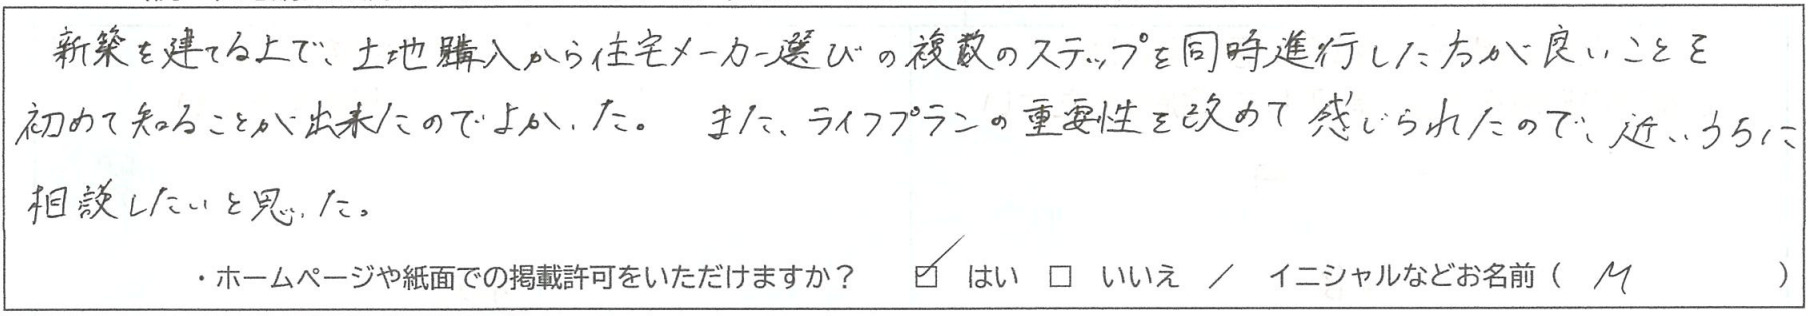 新築を建てる上で、土地購入から住宅メーカー選びの複数のステップを同時進行した方が良いことを
初めて知ることが出来たのでよかった。 また、ライフプランの重要性を改めて感じられたので、近いうちに
相談したいと思った。
・ホームページや紙面での掲載許可をいただけますか? ☑ はい □ いいえ / イニシャルなどお名前( M )